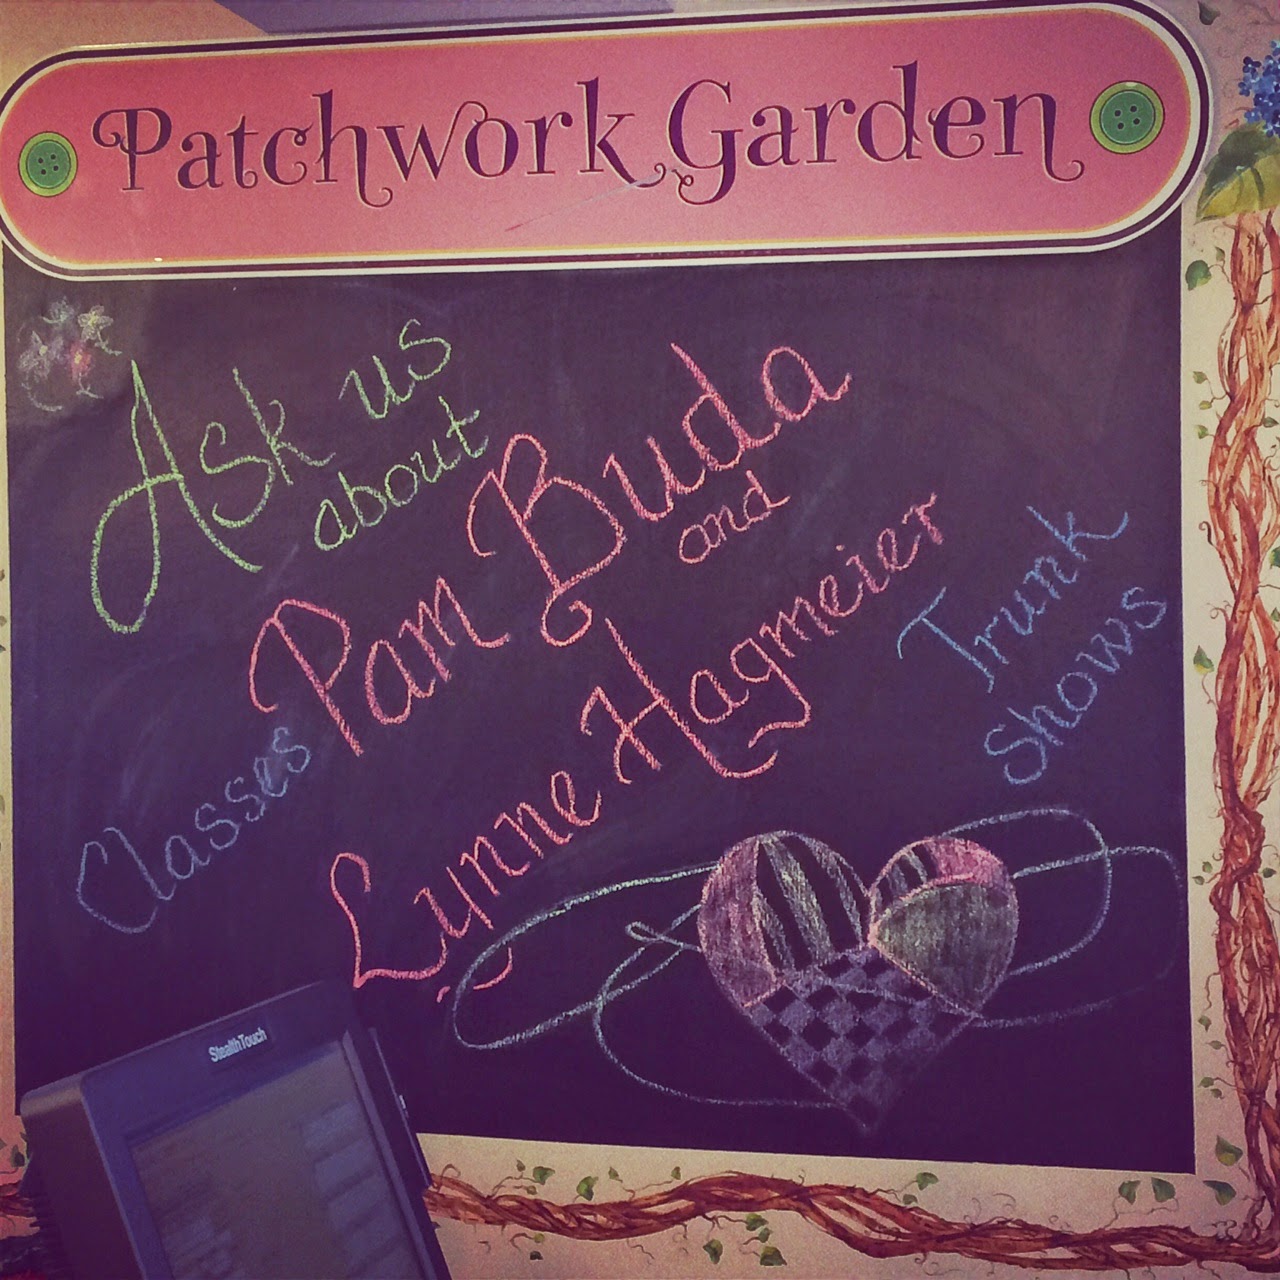 Patchwork Garden
Ask us
about
Pam Buda
and
Lynne Hagmeier
Classes
Trunk
Shows
StealthTouch